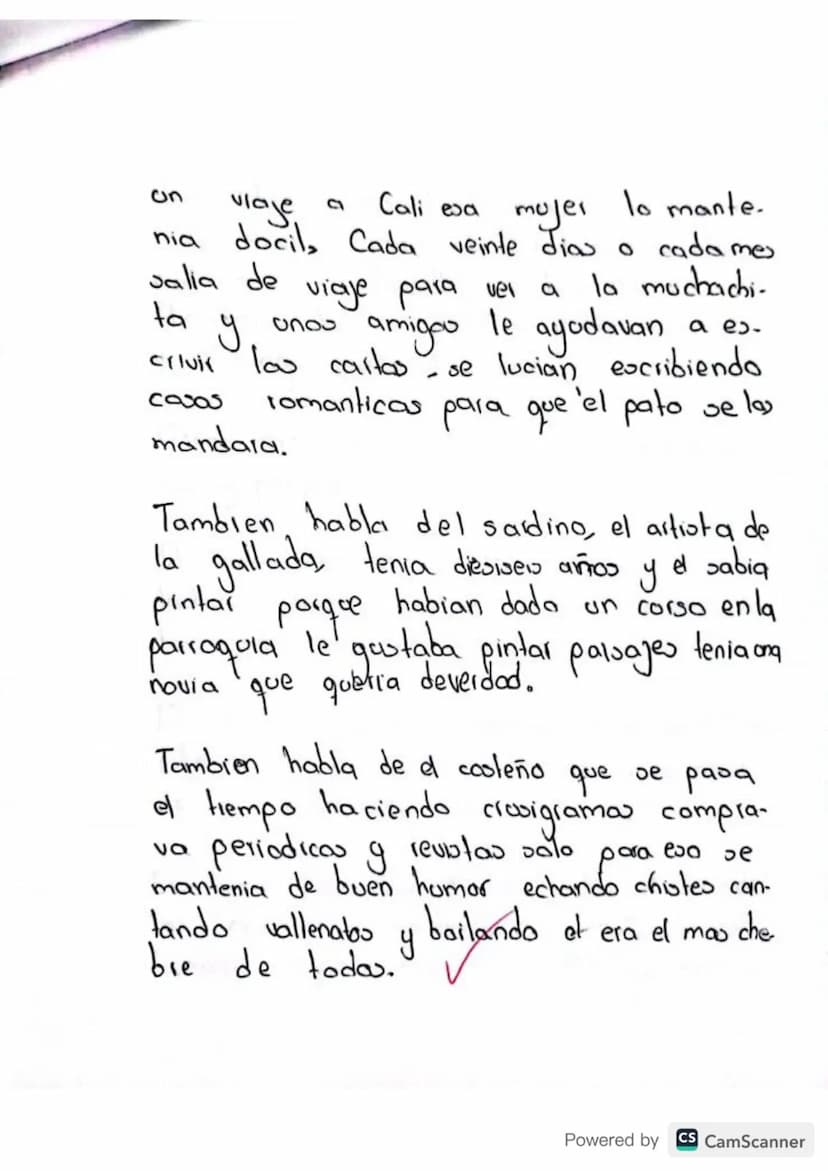 un viaje a Cali esa mujer lo mante-
nia docil, Cada veinte dias o cada mes
salia de viaje para ver a la muchachi-
ta y unos amigos le ayudavan a es-
crivir las cartas - se lucian escribiendo
casas romanticas para que 'el pato se las
mandara.
Tambien habla del sardino, el artista de
la gallada, tenia dieciseis años y el sabia
pintar porque habian dado un corso en la
parroquia le gustaba pintar paisajes tenia una
novia que queria deverdad.
Tambien habla de el costeño que se pasa
el tiempo haciendo crusigramas compra-
va periodicos y revistas solo para eso se
mantenia de buen humor echando chistes can-
tando vallenatos y bailando el era el mas che
bre de todos.
Powered by CS CamScanner